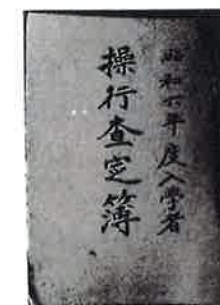 昭和六年度入学者
操行査定簿